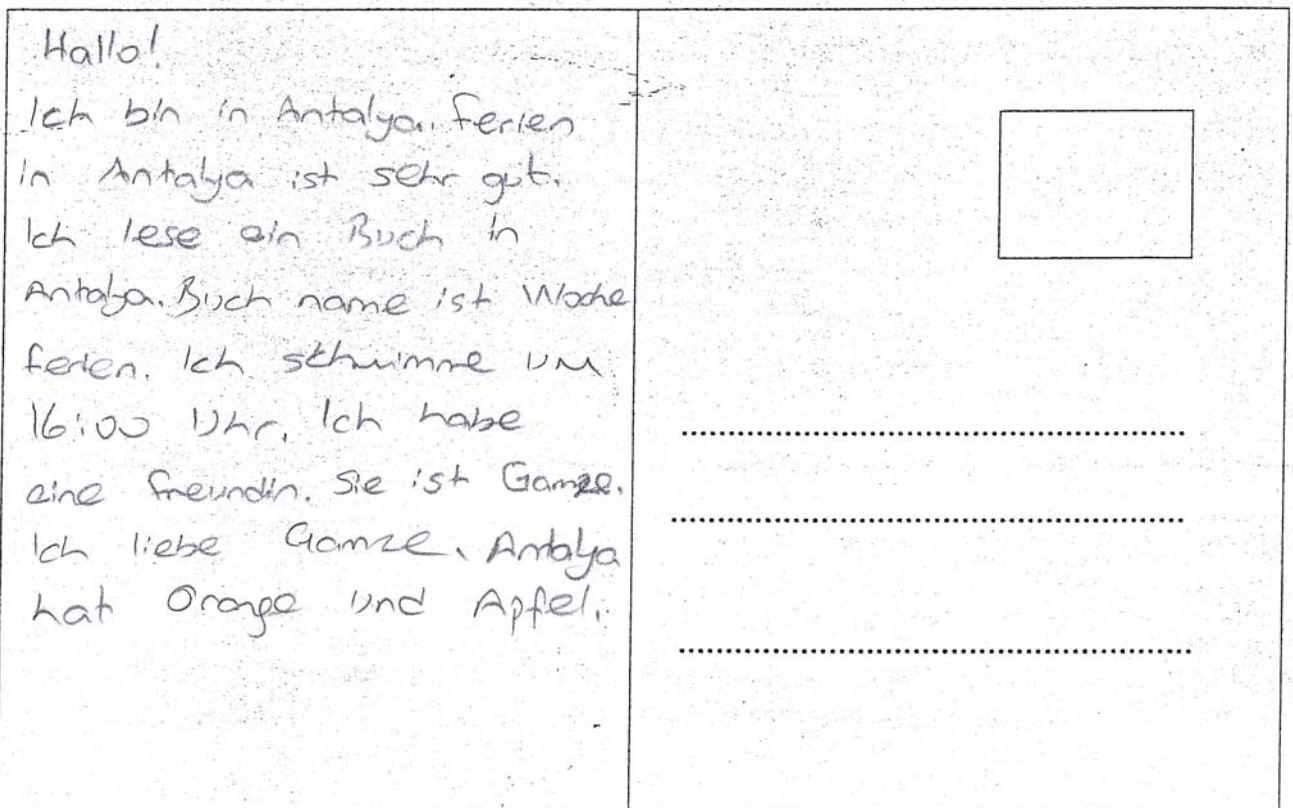 Hallo!
Ich bin in Antalya. ferien
in Antalya ist sehr gut.
Ich lese ein Buch in
Antalya. Buch name ist Woche
ferien. Ich schwimme um
16:00 Uhr. Ich habe
eine freundin. Sie ist Gamze.
Ich liebe Gamze. Antalya
hat Orange und Apfel.